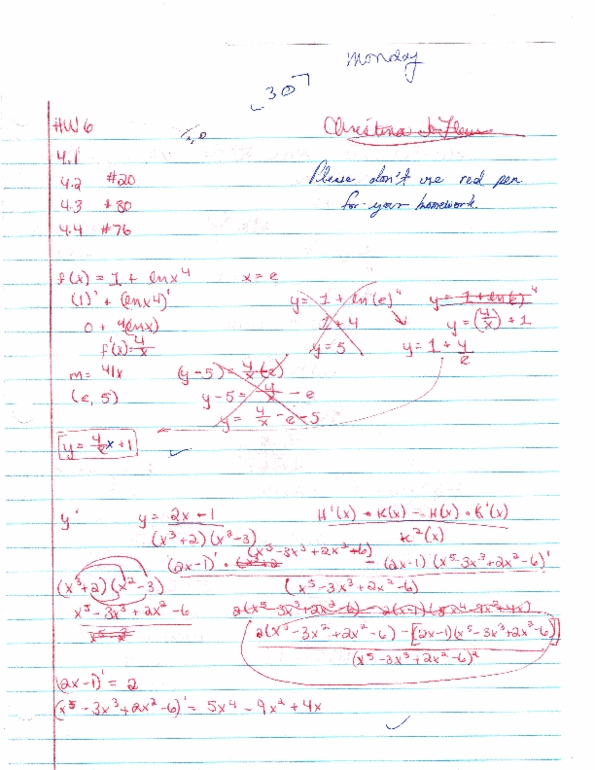 Monday
307
HW 6
Christina
4.1
4.2 #20
Please don't use red pen
4.3 #80
for your homework.
4.4 #76
f(x) = 1 + lnx⁴ x = e
(1)' + (lnx4)' y = 1 + ln(e)⁴ y = 1 + ln(e)⁴
0 + 4(lnx) 1 + 4 y = (4/x) + 1
f'(x) = 4/x y = 5 y = 1 + 4/e
m = 4/x (y-5) = 4/x (e)
(e, 5) y-5 = 4/x - e
y = 4/x - e - 5
y = 4/e x + 1
y' y = 2x - 1 / (x³+2)(x²-3) H'(x) • K(x) - H(x) • K'(x) / K²(x)
(2x-1)' • (x⁵-3x³+2x²+6) - (2x-1)(x⁵-3x³+2x²-6)'
(x³+2)(x²-3) (x⁵-3x³+2x²-6)
x⁵ - 3x³ + 2x² - 6 2(x⁵-3x³+2x²-6) - 2(x-1)(5x4-9x²+4x)
2(x⁵-3x²+2x²-6) - [(2x-1)(x⁵-3x³+2x²-6)]
(x⁵-3x³+2x²-6)²
(2x-1)' = 2
(x⁵ - 3x³ + 2x² - 6)' = 5x4 - 9x² + 4x